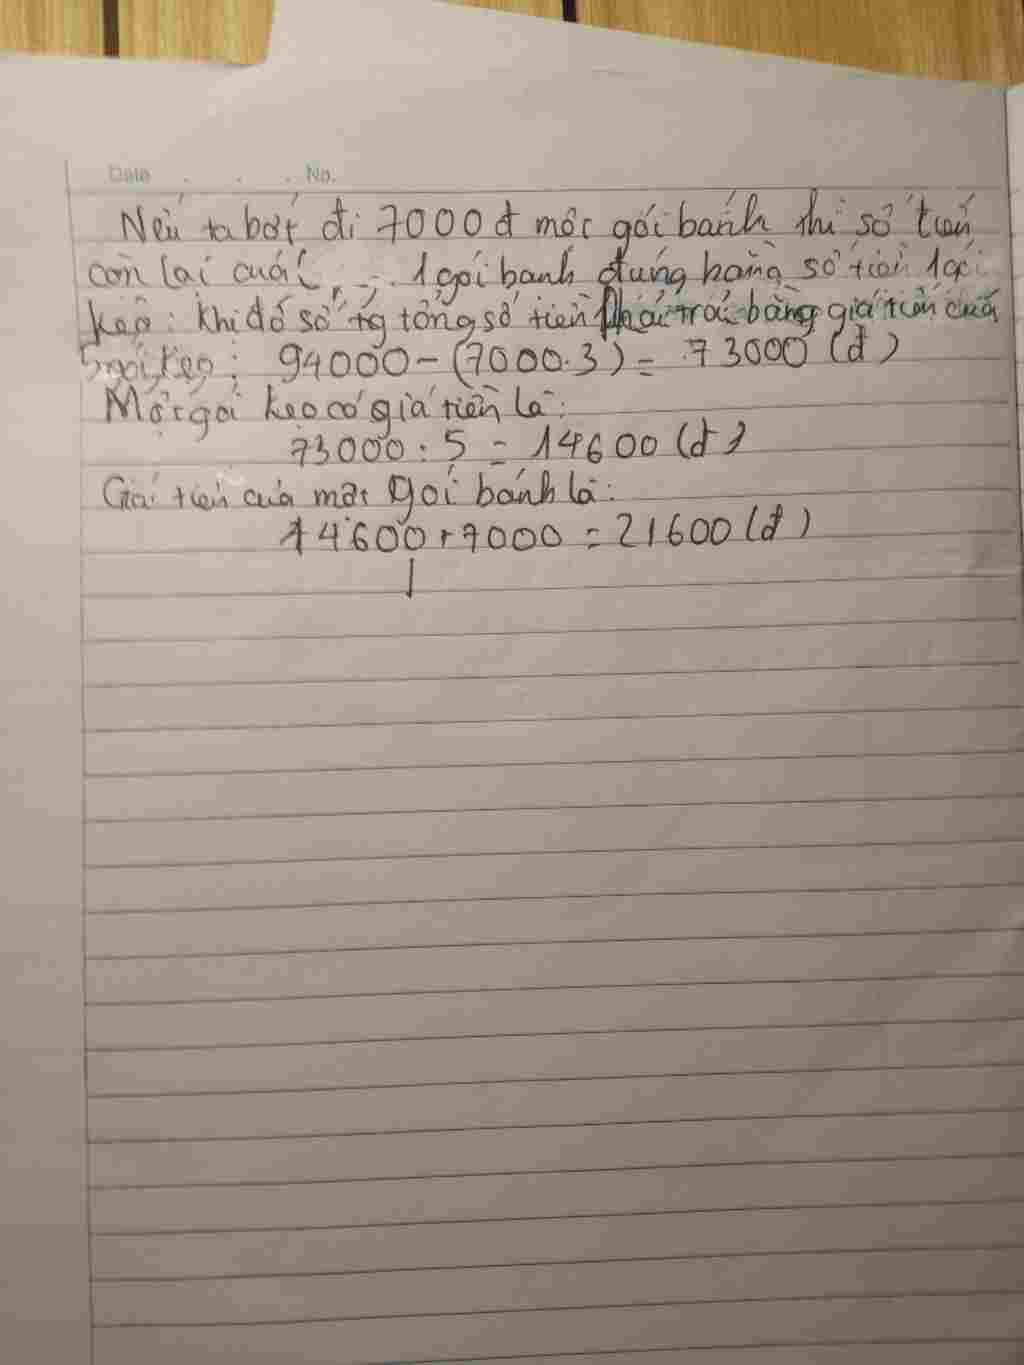 Date . . . No.
Nếu ta bớt đi 7000đ mỗi gói bánh thì số tiền
còn lại của 1 gói bánh đúng bằng số tiền 1 gói
kẹo: Khi đó số tg tổng số tiền phải trả bằng giá tiền của
5 gói kẹo: 94000-(7000.3) = 73000 (đ)
Một gói kẹo có giá tiền là:
73000:5 = 14600 (đ)
Giá tiền của một gói bánh là:
14600+7000 = 21600 (đ)